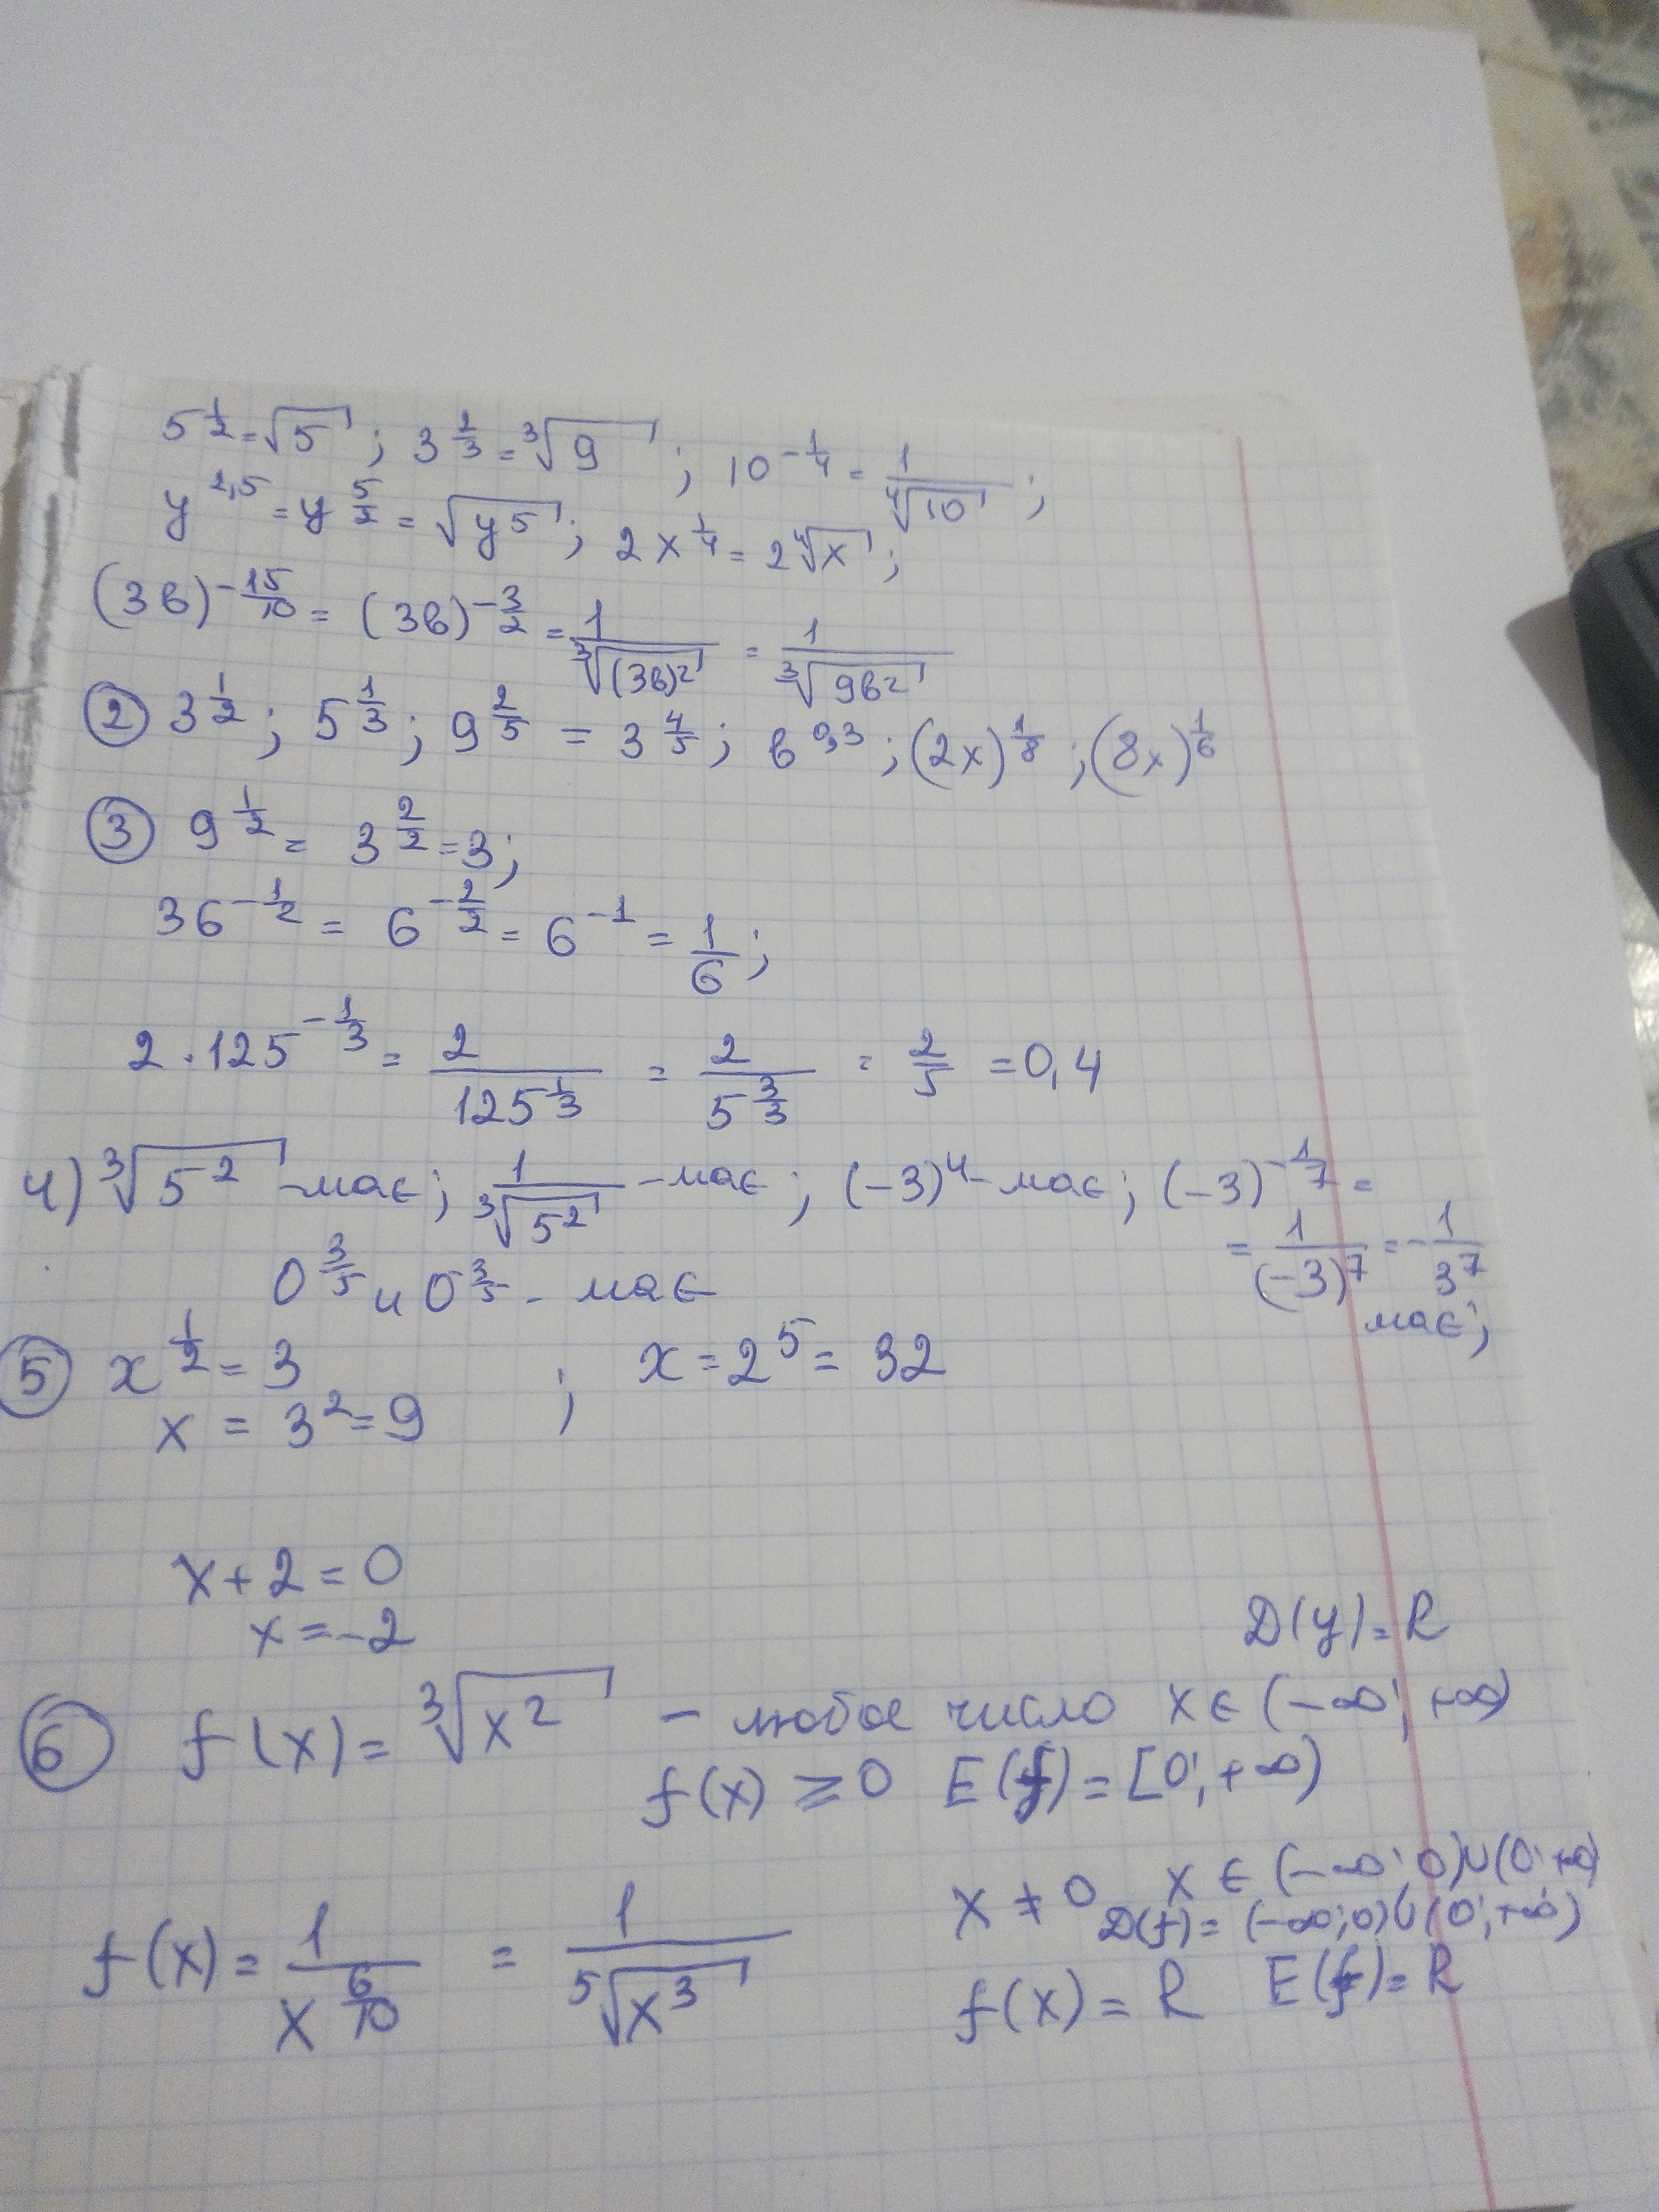 5^{1/2} = √5 ; 3^{2/3} = ∛9 ; 10^{-1/4} = 1/∜10 ;
y^{2,5} = y^{5/2} = √(y^5) ; 2x^{1/4} = 2∜x ;
(3в)^{-15/10} = (3в)^{-3/2} = 1/∛((3в)^2) = 1/∛(9в^2)
② 3^{1/2} ; 5^{1/3} ; 9^{2/5} = 3^{4/5} ; в^{0,3} ; (2x)^{1/8} ; (8x)^{1/6}
③ 9^{1/2} = 3^{2/2} = 3 ;
36^{-1/2} = 6^{-2/2} = 6^{-1} = 1/6 ;
2 · 125^{-1/3} = 2/125^{1/3} = 2/5^{3/3} = 2/5 = 0,4
4) ∛(5^2) - має ; 1/∛(5^2) - має ; (-3)^4 - має ; (-3)^{-1/7} =
= 1/(-3)^7 = -1/3^7
має ;
0^{3/5} и 0^{3/5} - має
⑤ x^{1/2} = 3 ; x = 2^5 = 32
x = 3^2 = 9
x + 2 = 0
x = -2
D(y) = R
⑥ f(x) = ∛(x^2) - любое число x ∈ (-∞; +∞)
f(x) ≥ 0 E(f) = [0; +∞)
x ≠ 0 x ∈ (-∞; 0)∪(0; +∞)
D(f) = (-∞; 0)∪(0; +∞)
f(x) = 1/x^{6/10} = 1/⁵√(x^3) f(x) = R E(f) = R